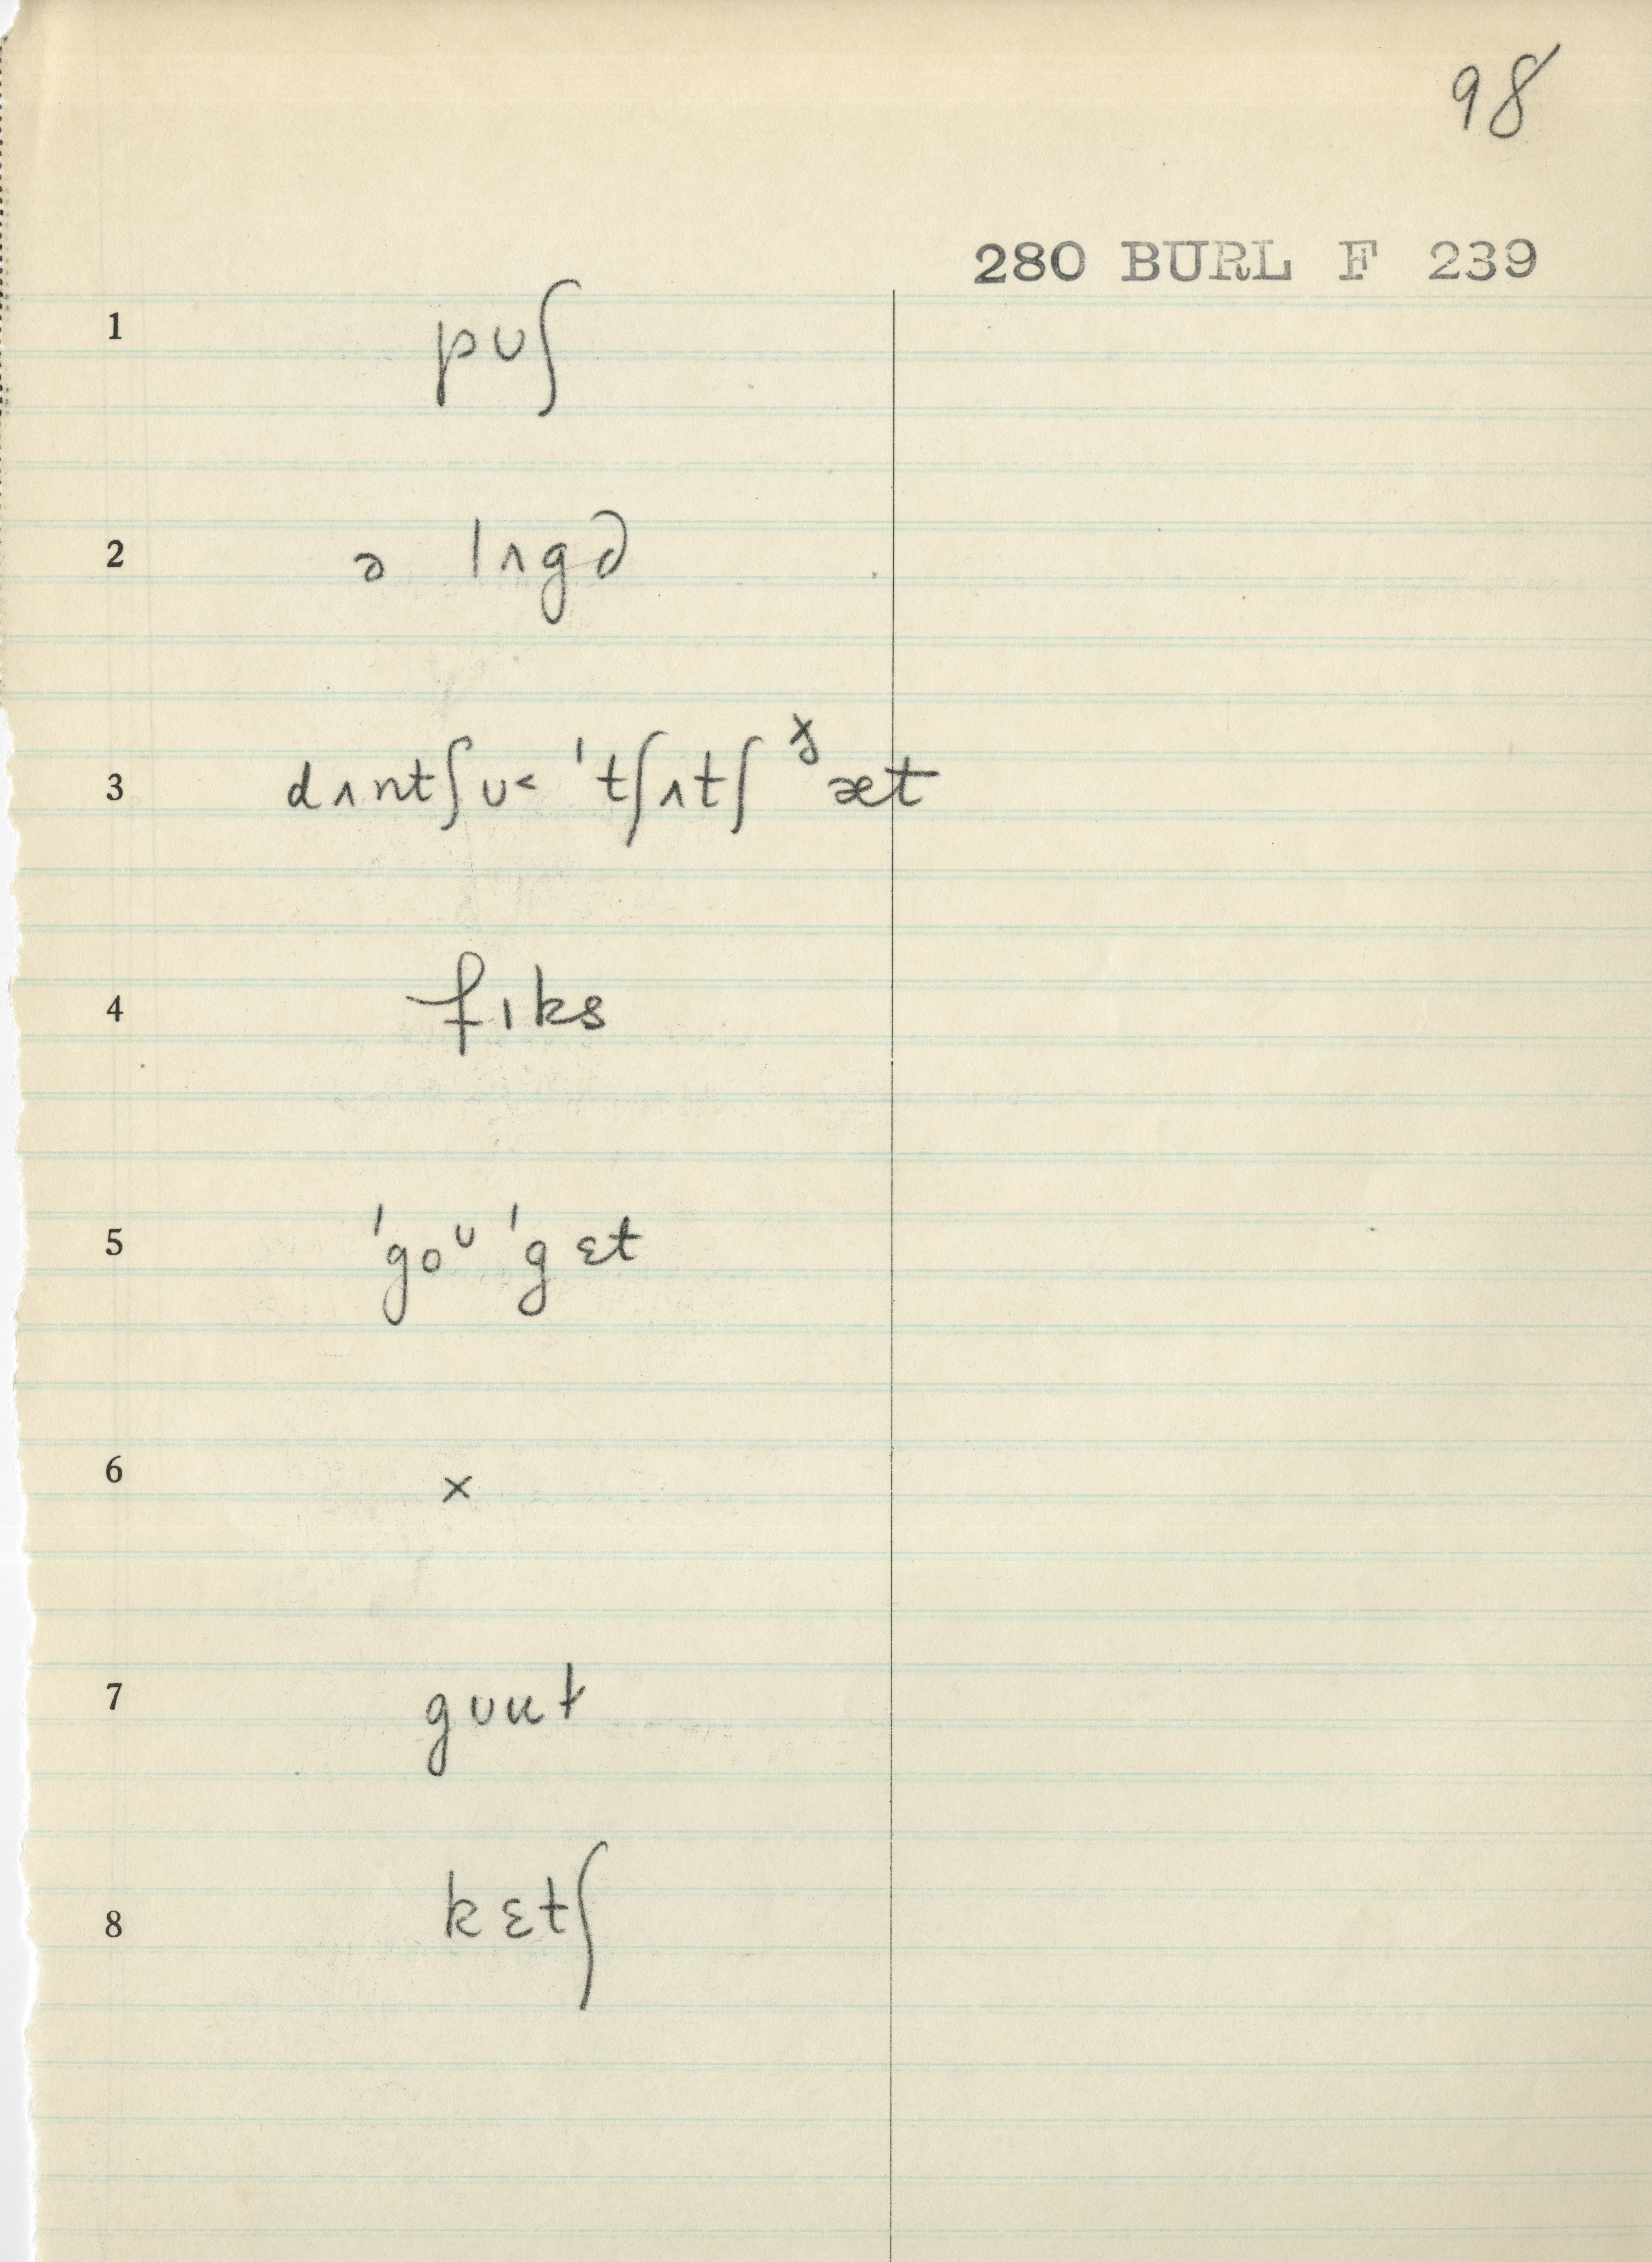 98
280 BURL F 239
1 pʊʃ
2 ə lʌgə
3 dʌntʃʊ< 'tʃʌtʃ ɣ æt
4 fɪks
5 'goᶷ 'gɛt
6 ×
7 gʊut
8 kɛtʃ